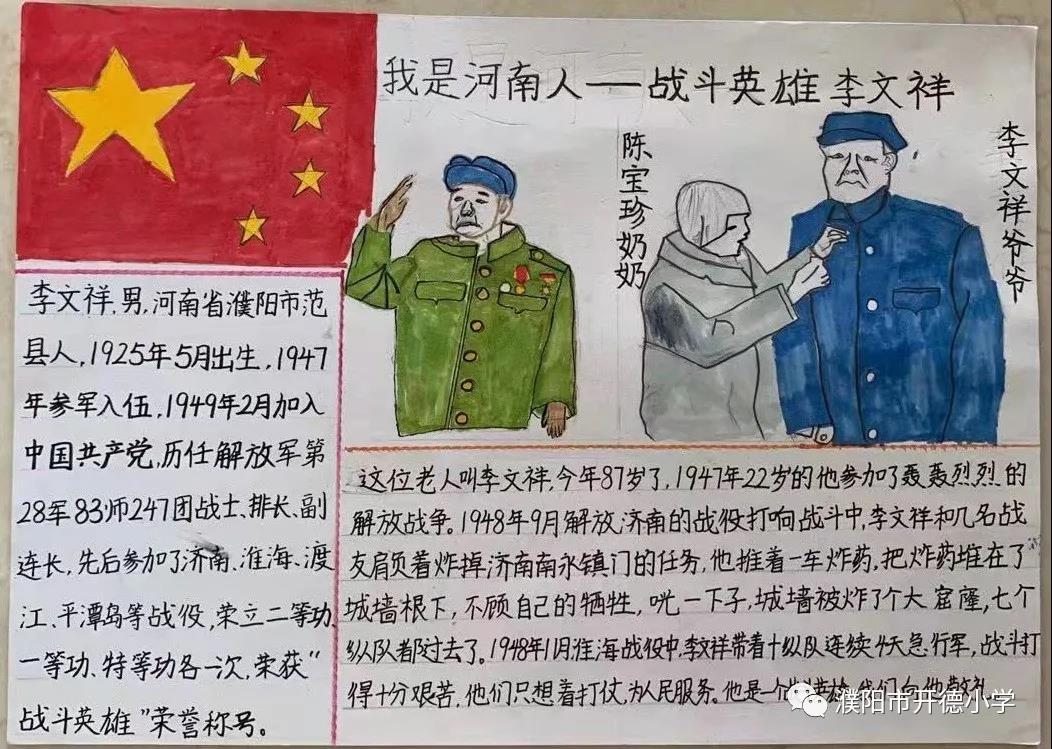 我是河南人——战斗英雄李文祥
陈宝珍奶奶
李文祥爷爷
李文祥,男,河南省濮阳市范
县人,1925年5月出生,1947
年参军入伍,1949年2月加入
中国共产党,历任解放军第
28军83师247团战士、排长、副
连长,先后参加了济南、淮海、渡
江、平潭岛等战役,荣立二等功
一等功、特等功各一次,荣获“
战斗英雄”荣誉称号。
这位老人叫李文祥,今年87岁了,1947年22岁的他参加了轰轰烈烈的
解放战争。1948年9月解放济南的战役打响战斗中,李文祥和几名战
友肩负着炸掉济南南永镇门的任务,他推着一车炸药,把炸药堆在了
城墙根下,不顾自己的牺牲,咣一下子,城墙被炸了个大窟窿,七个
纵队都过去了。1948年11月,淮海战役中,李文祥带着十纵队连续4天急行军,战斗打
得十分艰苦,他们只想着打仗,为人民服务。他是一个
濮阳市开德小学